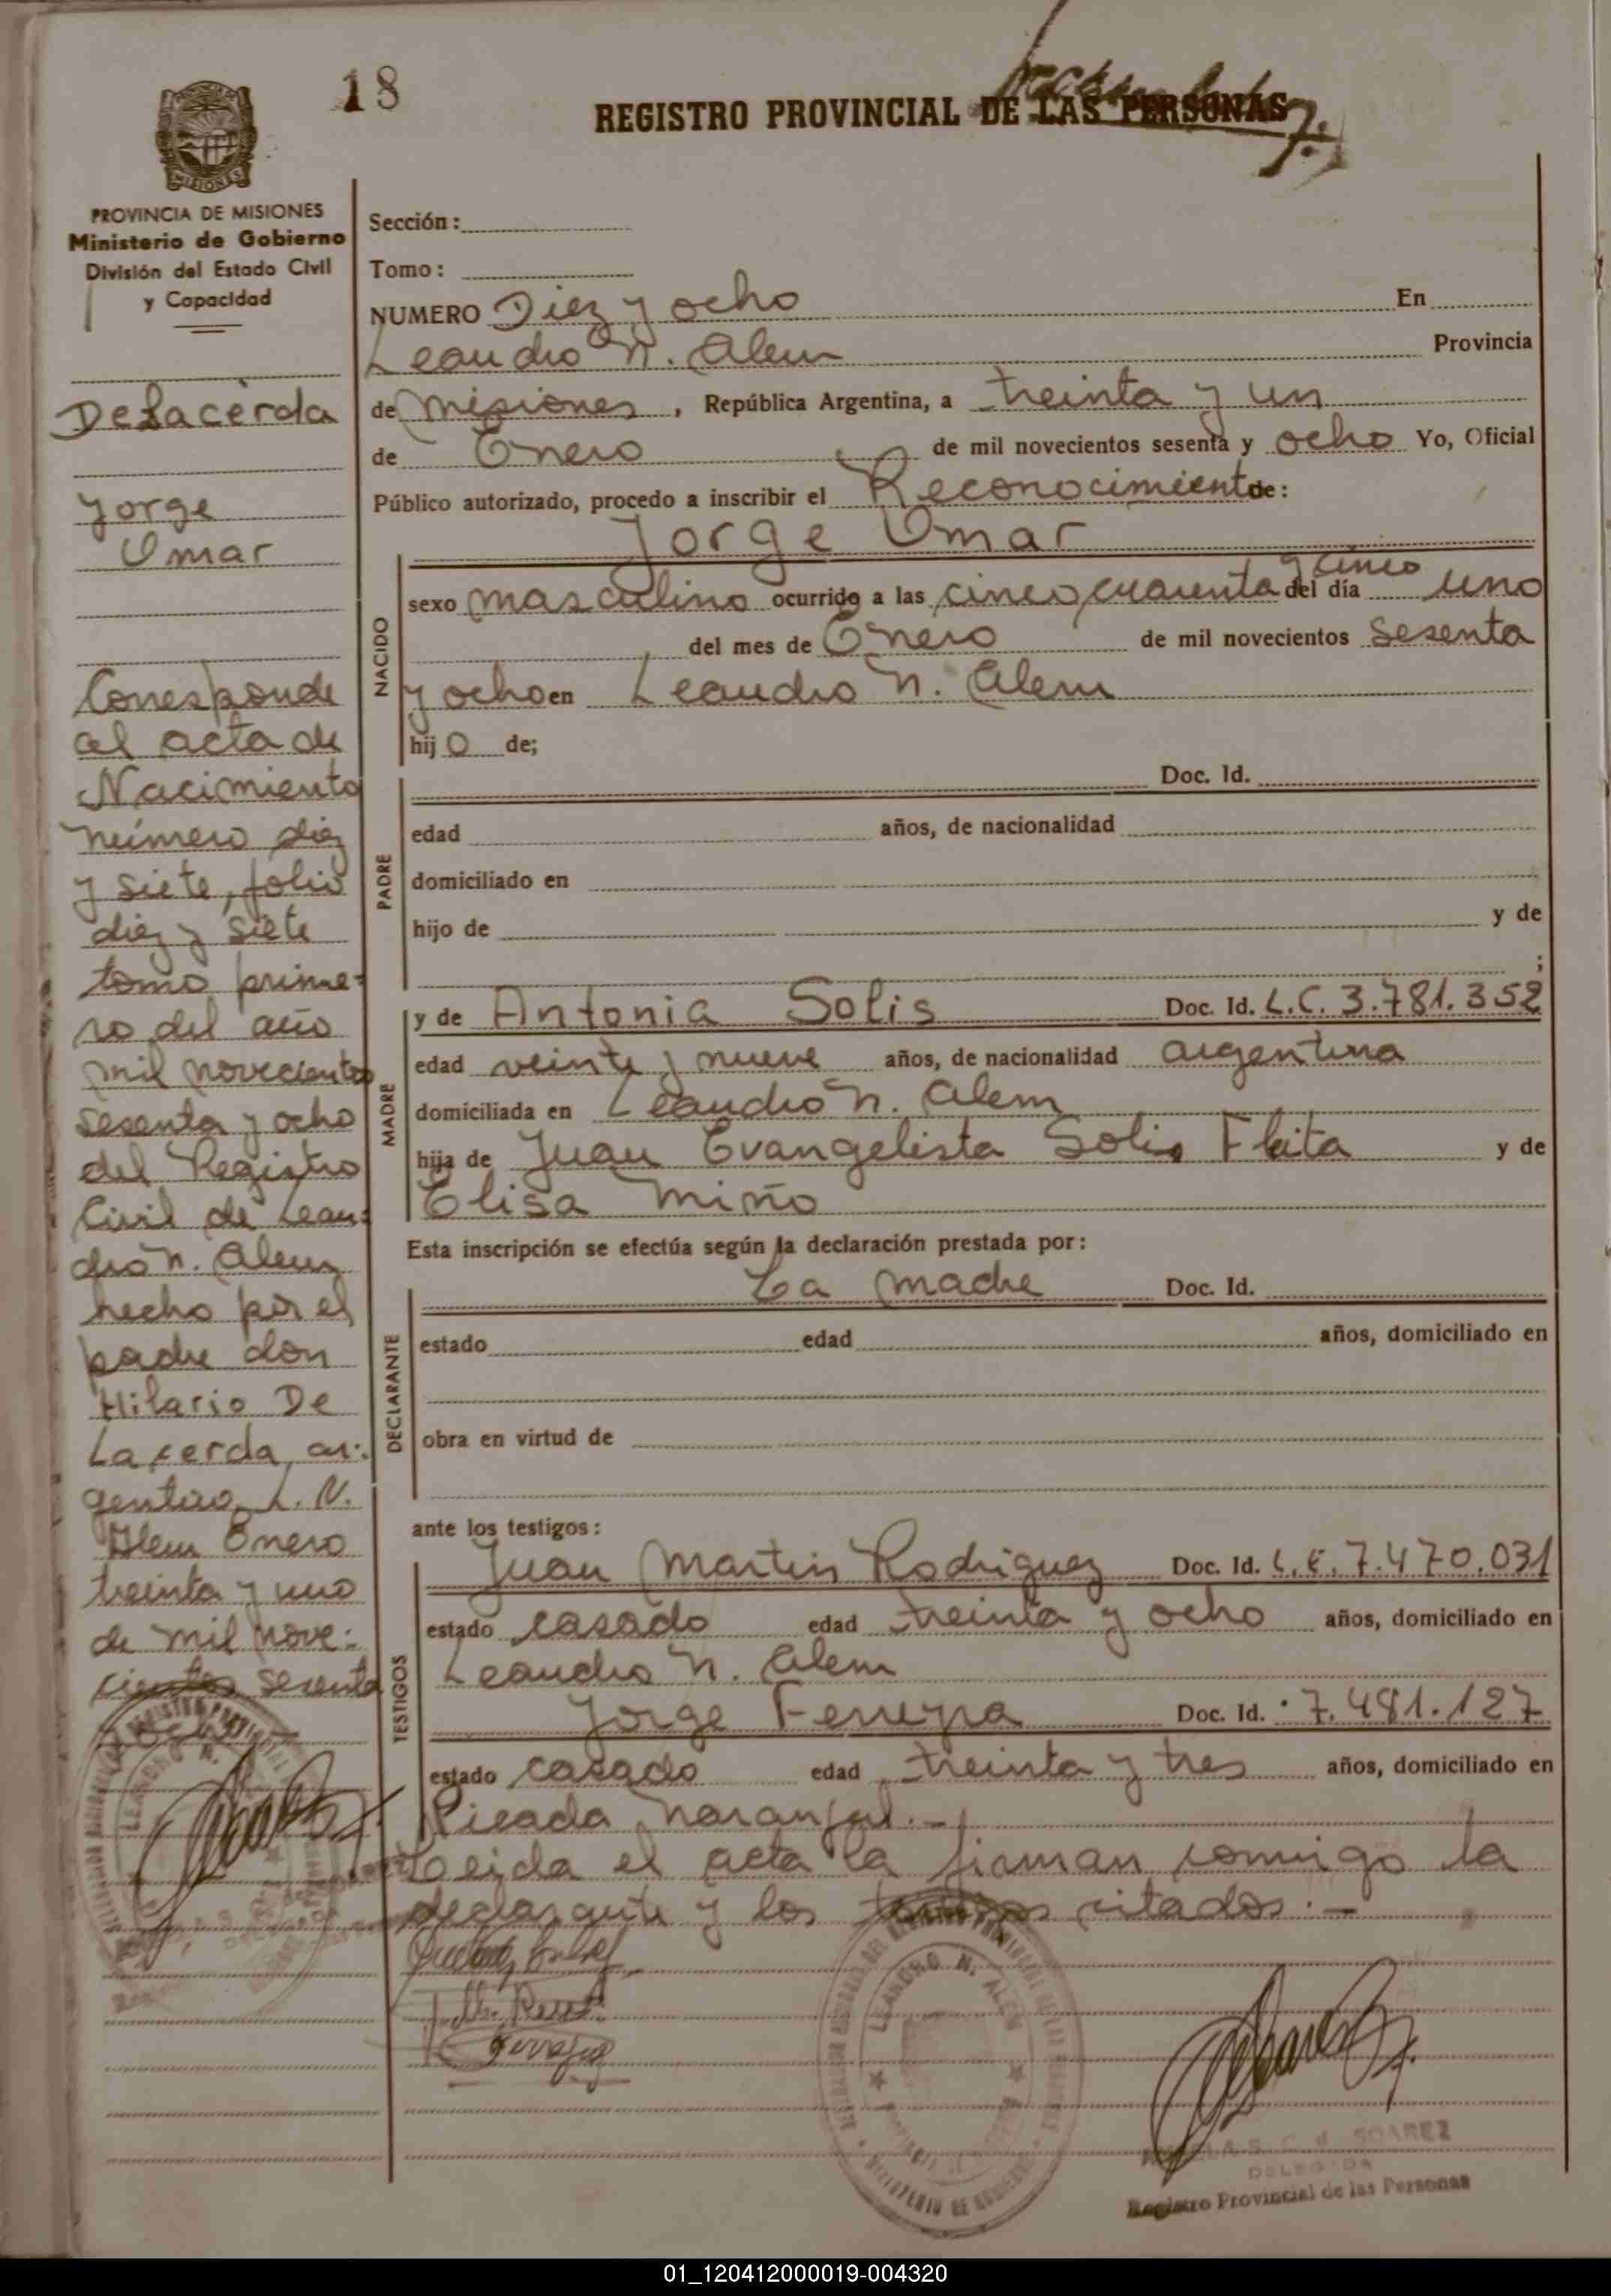 18
REGISTRO PROVINCIAL DE LAS PERSONAS
MISIONES
PROVINCIA DE MISIONES
Ministerio de Gobierno
División del Estado Civil
y Capacidad
DeLacerda
Jorge
Omar
Corresponde
al acta de
Nacimiento
número diez
y siete, folio
diez y siete
tomo prime-
ro del año
mil novecientos
sesenta y ocho
del Registro
Civil de Lean-
dro N. Alem
hecho por el
padre don
Hilario De
Lacerda, ar-
gentino, L. N.
Alem Enero
treinta y uno
de mil nove-
cientos sesenta
y ocho
Sección:
Tomo:
NUMERO Diez y ocho En
Leandro N. Alem Provincia
de Misiones, República Argentina, a treinta y un
de Enero de mil novecientos sesenta y ocho Yo, Oficial
Público autorizado, procedo a inscribir el Reconocimiento de:
Jorge Omar
NACIDO
sexo masculino ocurrido a las cinco cuarenta y cinco del día uno
del mes de Enero de mil novecientos sesenta
y ocho en Leandro N. Alem
hijo de;
PADRE
Doc. Id.
edad años, de nacionalidad
domiciliado en
hijo de y de
;
MADRE
y de Antonia Solis Doc. Id. L.C. 3.781.352
edad veinte y nueve años, de nacionalidad argentina
domiciliada en Leandro N. Alem
hija de Juan Evangelista Solis Fleita y de
Elisa Miño
Esta inscripción se efectúa según la declaración prestada por:
DECLARANTE
La madre Doc. Id.
estado edad años, domiciliado en
obra en virtud de
ante los testigos:
TESTIGOS
Juan Martin Rodriguez Doc. Id. L.E. 7.470.031
estado casado edad treinta y ocho años, domiciliado en
Leandro N. Alem
Jorge Ferreyra Doc. Id. 7.481.127
estado casado edad treinta y tres años, domiciliado en
Picada Naranjal.-
Leida el acta la firman conmigo la
declarante y los testigos citados.-
LEANDRO N. ALEM
SOAREZ
DELEGADA
Registro Provincial de las Personas
01_120412000019-004320